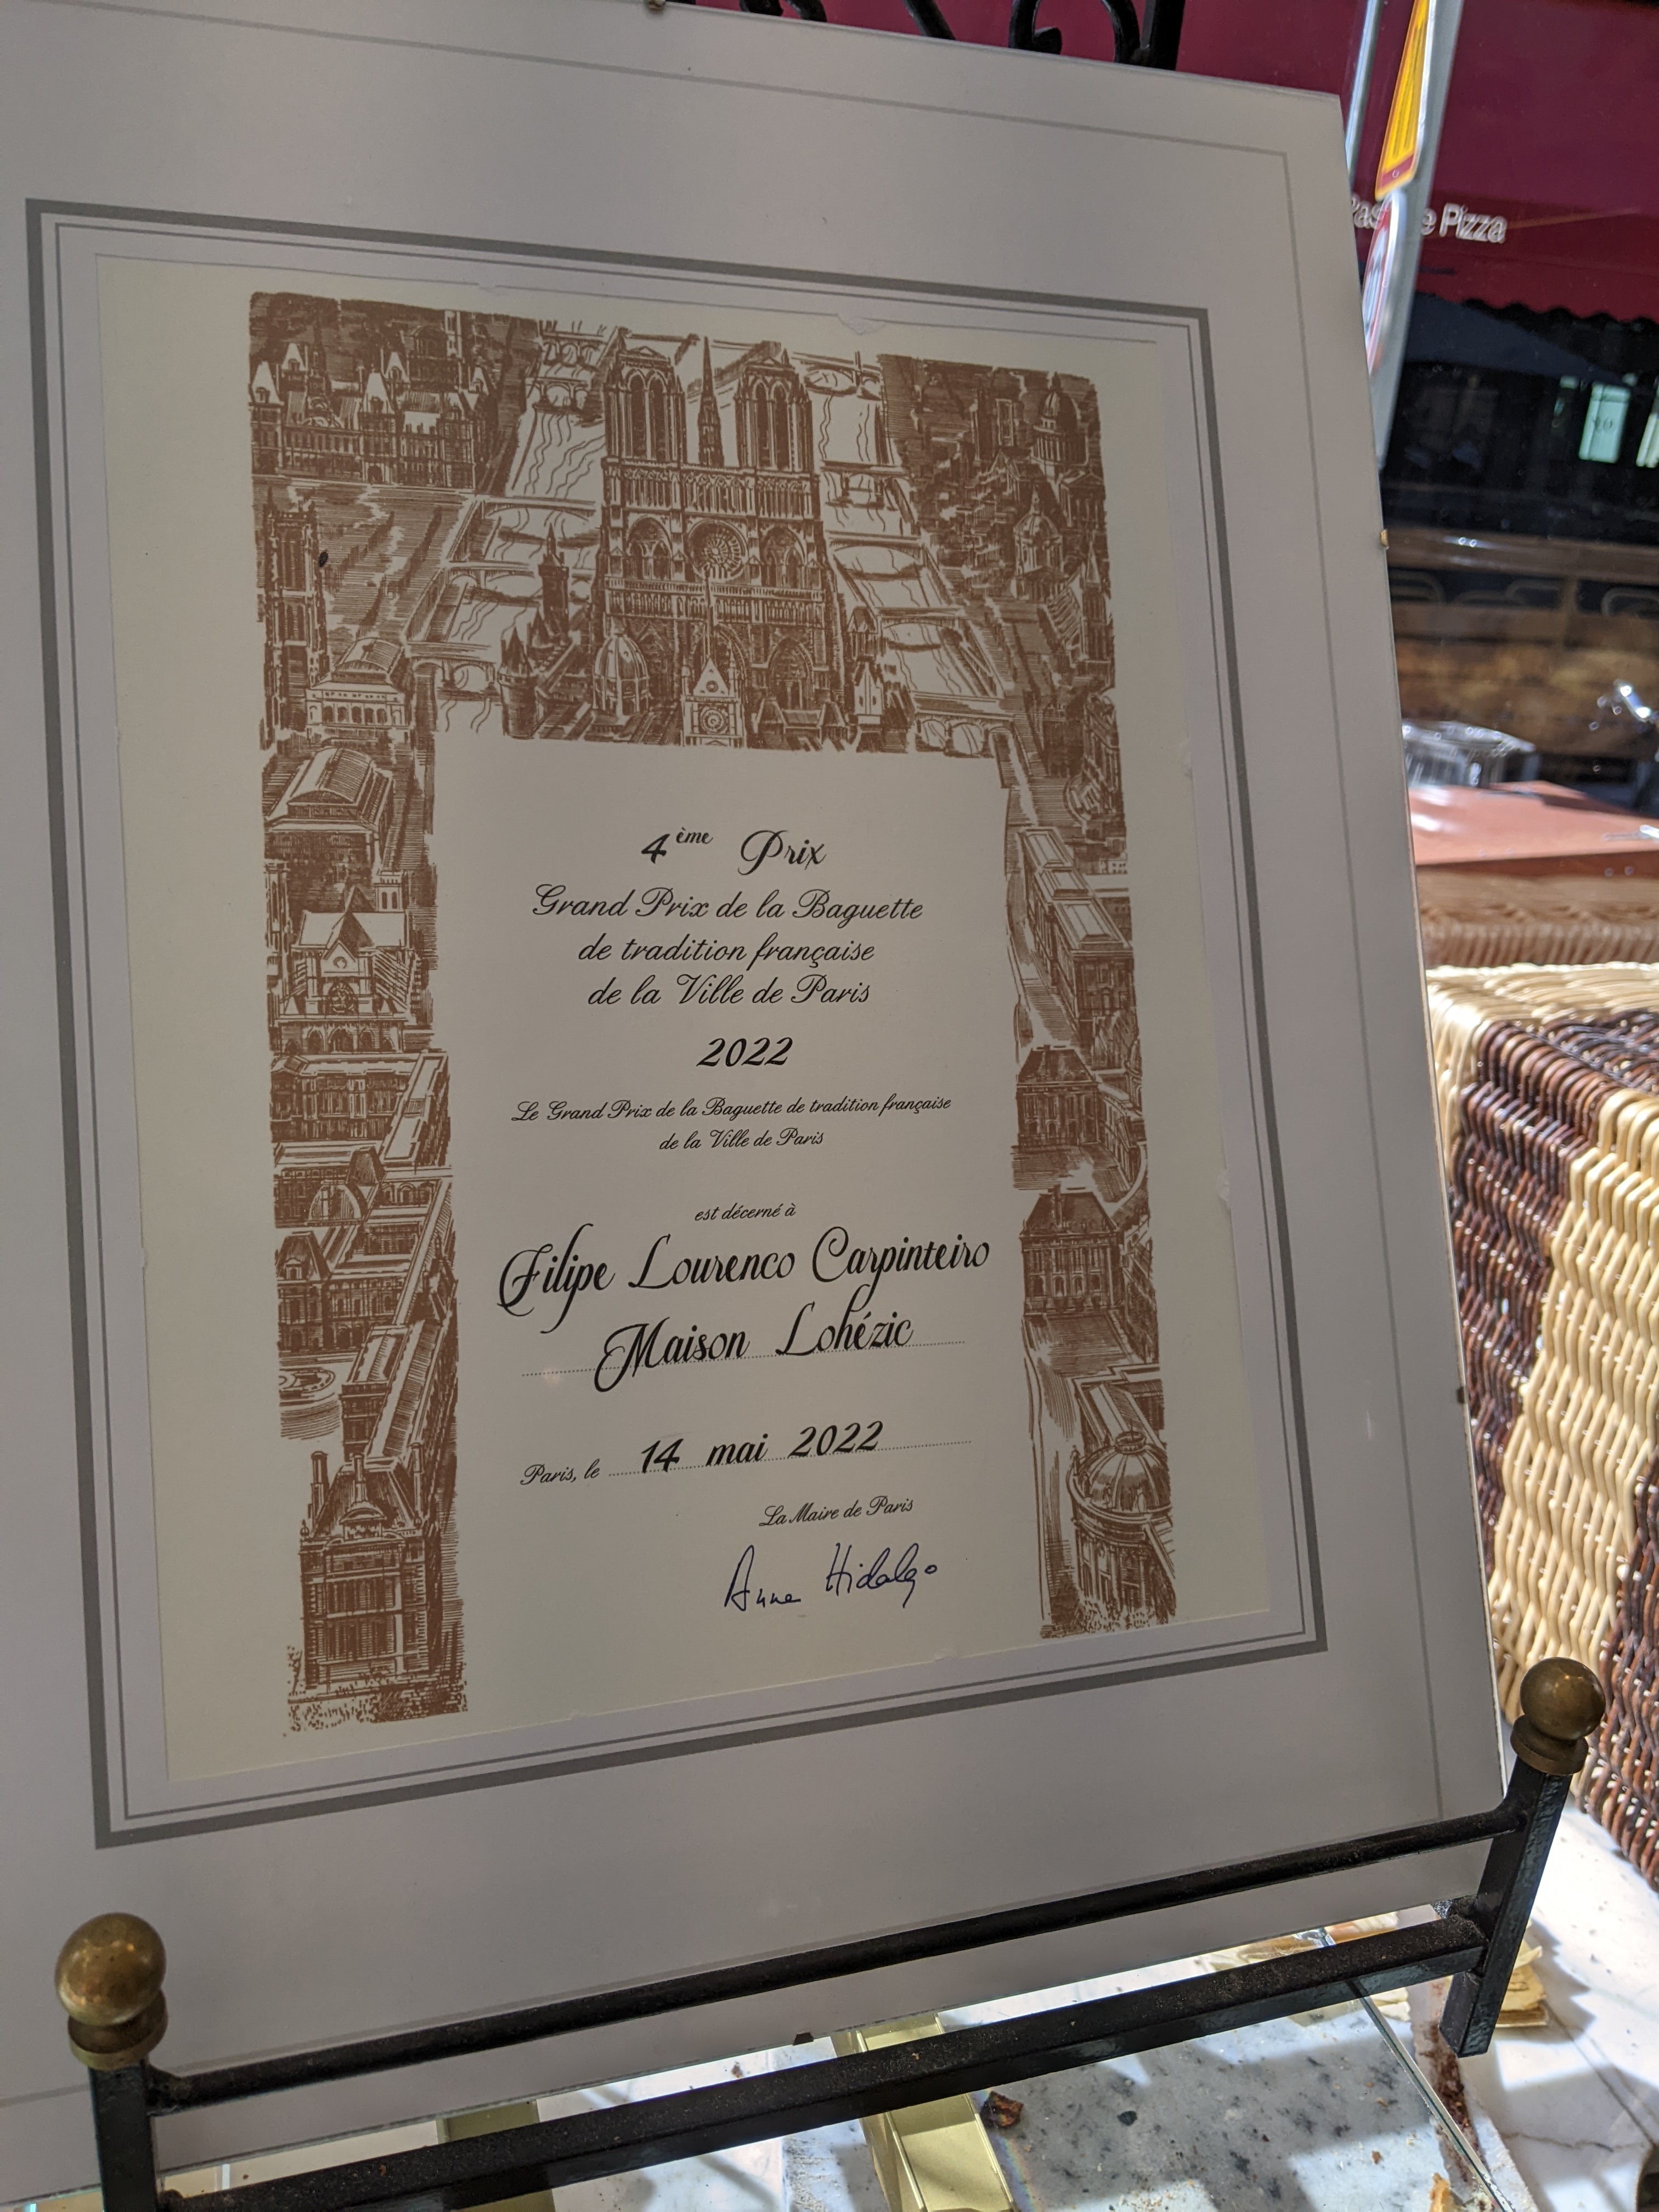 e Pizza
4ème Prix
Grand Prix de la Baguette
de tradition française
de la Ville de Paris
2022
Le Grand Prix de la Baguette de tradition française
de la Ville de Paris
est décerné à
Filipe Lourenco Carpinteiro
Maison Lohézic
Paris, le 14 mai 2022
La Maire de Paris
Anne Hidalgo